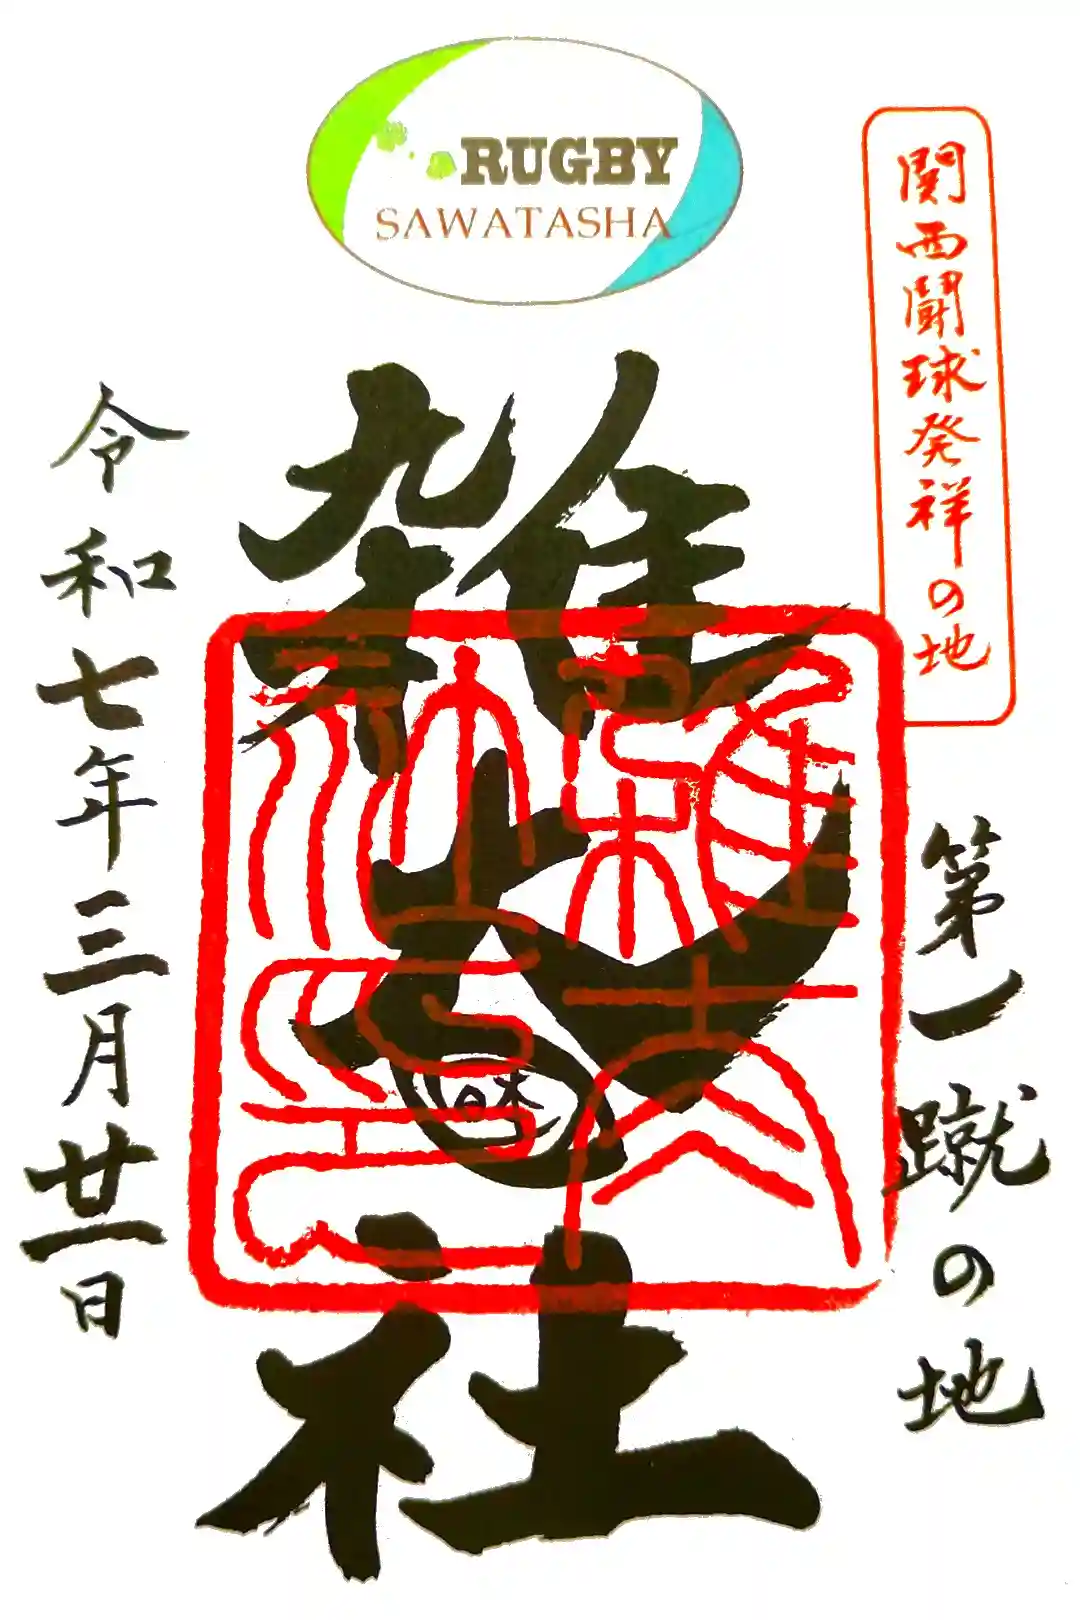 RUGBY
SAWATASHA
関西闘球発祥の地
第一蹴の地
雑太社
雑太社之印
令和七年三月廿一日